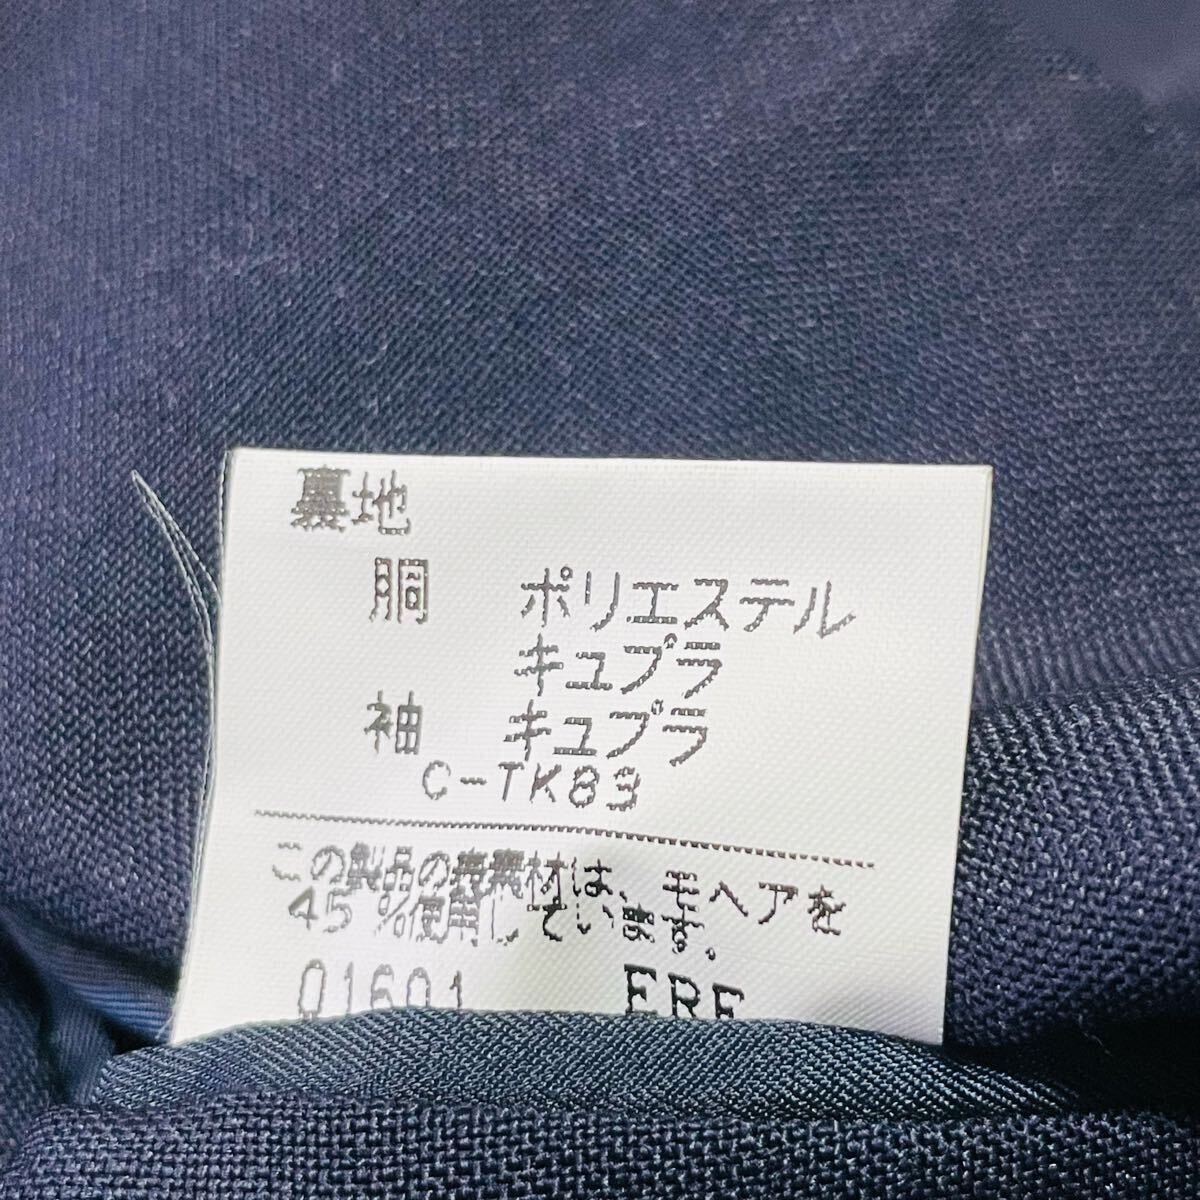 裏地
胴 ポリエステル
キュプラ
袖 キュプラ
C-TK83
この製品の表素材は、モヘアを
45%使用しています。
01601